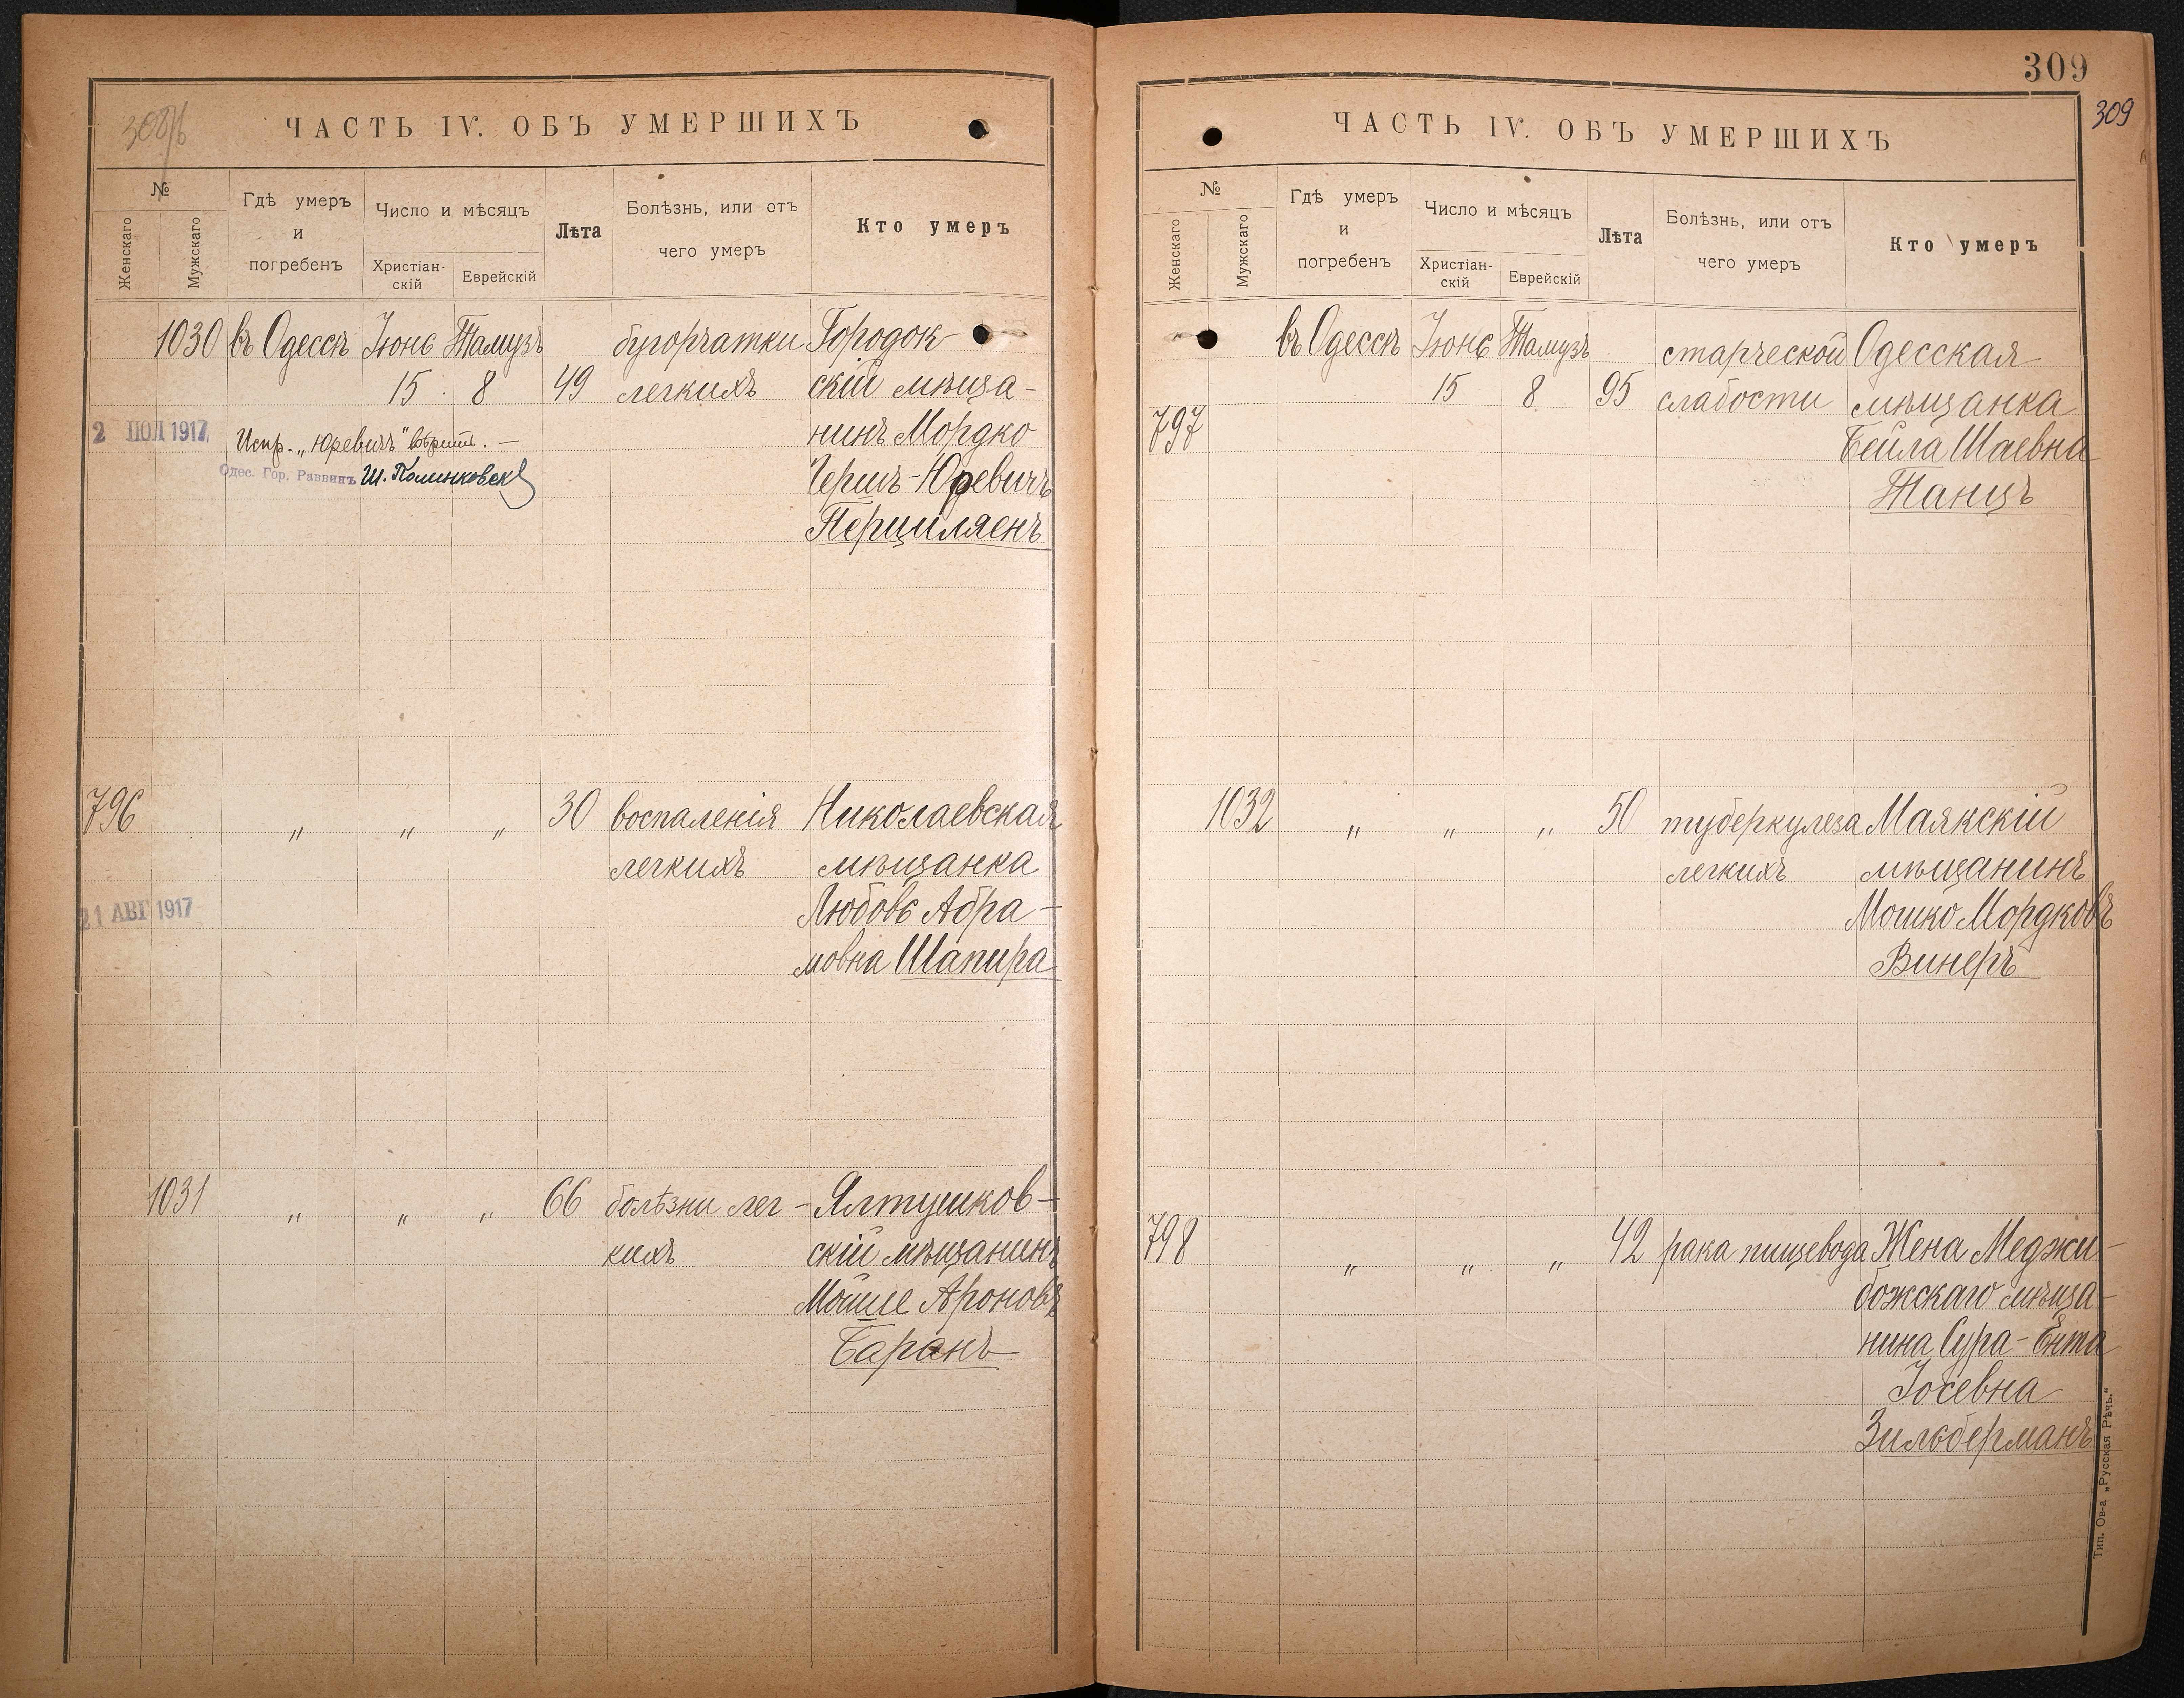 308/б
ЧАСТЬ IV. ОБЪ УМЕРШИХЪ
№
Женскаго
Мужскаго
Гдѣ умеръ
и
погребенъ
Число и мѣсяцъ
Христіан-
скій
Еврейскій
Лѣта
Болѣзнь, или отъ
чего умеръ
Кто умеръ
1030 въ Одессѣ Іюнь Тамузъ бугорчатки Городок-
15 8 49 легкихъ скій мѣща-
нинъ Мордко
Гершъ-Юревичъ
Перциляенъ
2 ІЮЛ 1917
Испр. „Юревичъ" вѣрить. —
Одес. Гор. Раввинъ Ш. Полинковскі
796 " " " 30 воспаленія Николаевская
легкихъ мѣщанка
Любовь Абра-
мовна Шапира
21 АВГ 1917
1031 " " " 66 болѣзни лег- Ялтушков-
кихъ скій мѣщанинъ
Мойше Ароновъ
Баранъ
309
309
ЧАСТЬ IV. ОБЪ УМЕРШИХЪ
№
Женскаго
Мужскаго
Гдѣ умеръ
и
погребенъ
Число и мѣсяцъ
Христіан-
скій
Еврейскій
Лѣта
Болѣзнь, или отъ
чего умеръ
Кто умеръ
въ Одессѣ Іюнь Тамузъ старческой Одесская
797 15 8 95 слабости мѣщанка
Бейла Шаевна
Танцъ
1032 " " " 50 туберкулеза Маякскій
легкихъ мѣщанинъ
Мошко Мордковъ
Винеръ
798 " " " 42 рака пищевода Жена Меджи-
божскаго мѣща-
нина Сура-Ента
Іосевна
Зильберманъ
Тип. Ов-а „Русская Рѣчь."